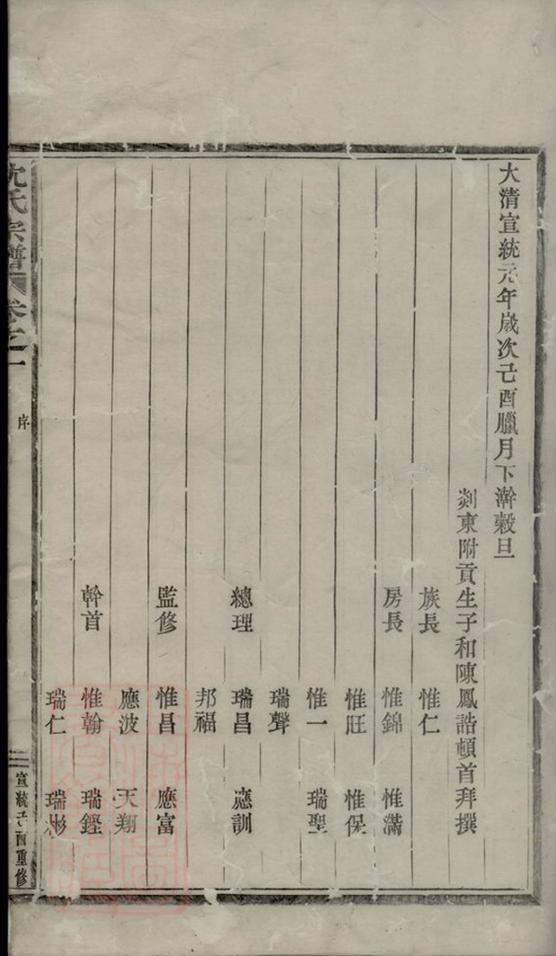 大清宣統元年歲次己酉臘月下澣穀旦
剡東附貢生子和陳鳳誥頓首拜撰
族長 惟仁
房長 惟錦 惟滿
惟旺 惟保
惟一 瑞聖
瑞聲
總理 瑞昌 應訓
邦福
監修 惟昌 應富
應波 天翔
幹首 惟翰 瑞鏗
瑞仁 瑞彬
沈氏宗譜 卷之一 序 宣統己酉重修